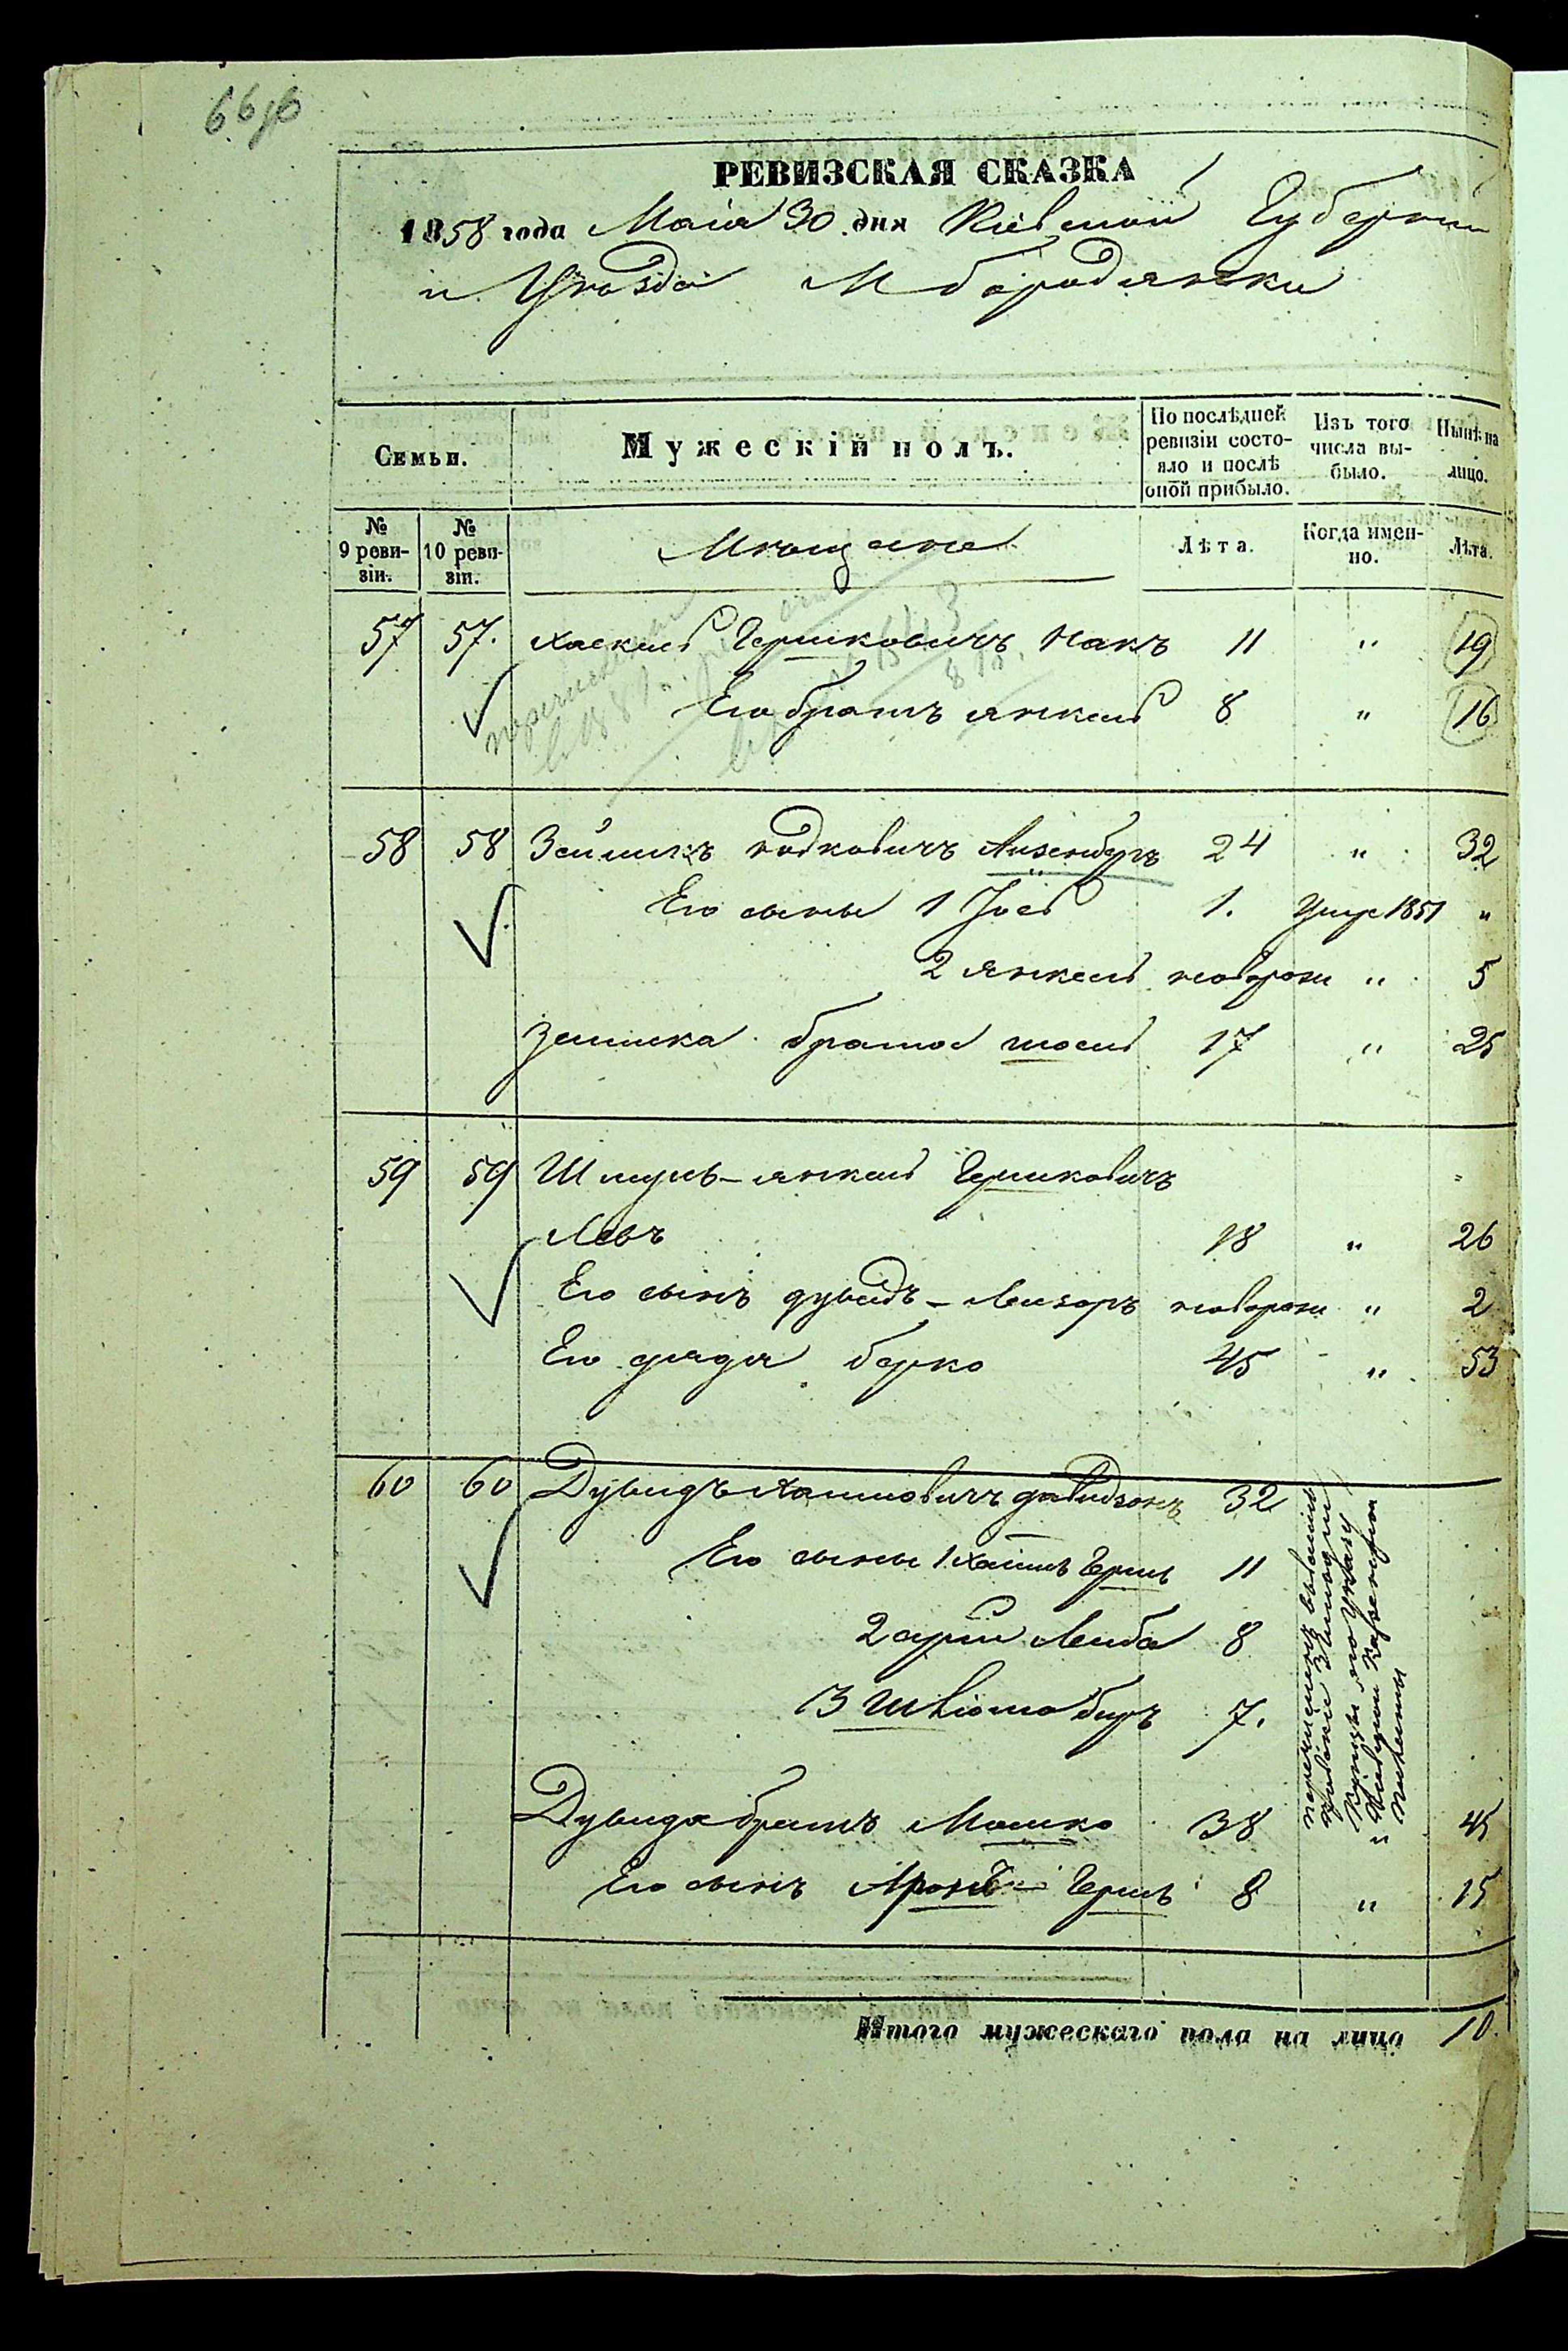 66 об
РЕВИЗСКАЯ СКАЗКА
1858 года Маія 30 дня Кіевской Губерніи
и Уѣзда М Бородянки
Семьи. Мужескій полъ. По послѣдней ревизіи состояло и послѣ оной прибыло. Изъ того числа выбыло. Нынѣ на лицо.
№ 9 ревизіи. № 10 ревизіи. Мѣщане Лѣта. Когда именно. Лѣта.
57 57. Хаскель Гершковичъ Макъ 11 " 19
Его братъ Янкель 8 " 16
58 58 Зейликъ Айзенбугъ 24 " 32
Его сыны 1 Іось 1. Умре 1851 "
2 Янкель новорож " 5
Зейлика братъ 17 " 25
59 59 Шмуль-Янкель Гершковичъ
Левъ 18 " 26
Его сынъ Дувидъ-Лейзоръ новорож " 2
Его дядя Берко 45 " 53
60 60 Дувидъ Хаимовичъ Давидзонъ 32
Его сыны 1 Хаимъ Гершъ 11
2 Арій Лейба 8
3 7.
перечисленъ
Дувида братъ Мошко 38 " 45
Его сынъ Аронъ Гершъ 8 " 15
Итого мужескаго пола на лицо 10.